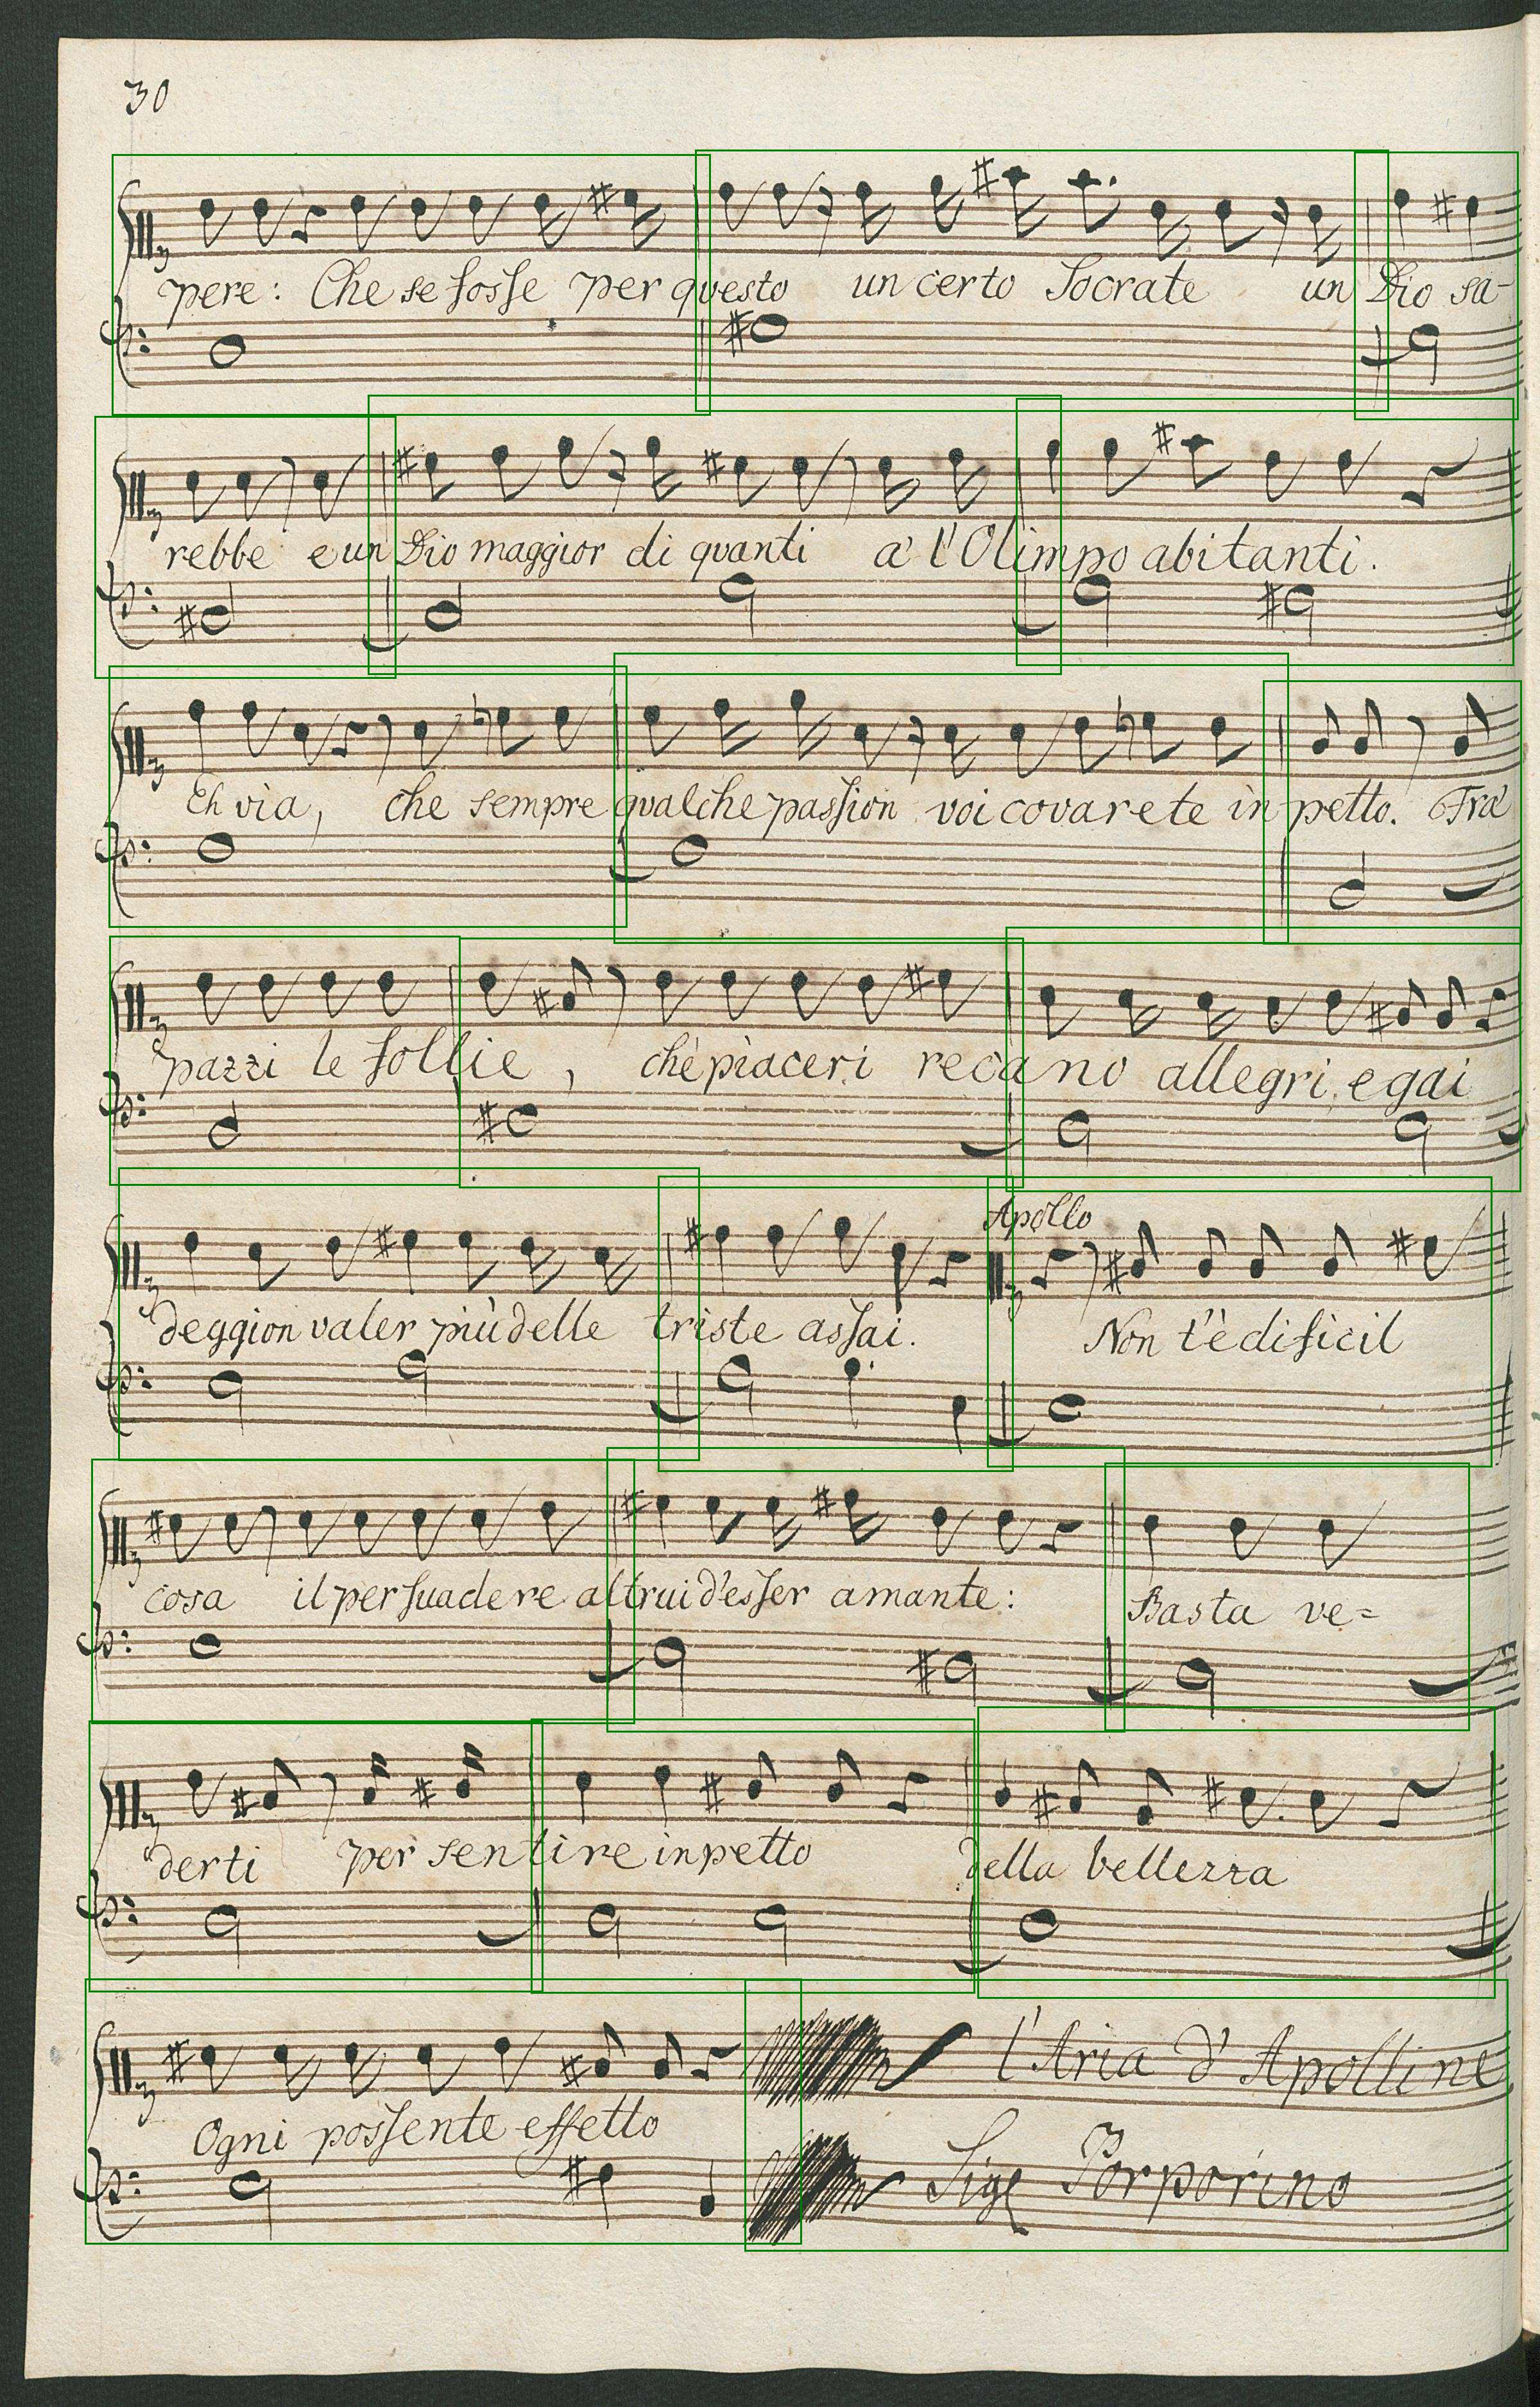 30
pere: Che se fosse per questo un certo Socrate un Dio sa-
rebbe e un Dio maggior di quanti a' l'Olimpo abitanti.
Eh via, che sempre qualche passion voi covarete in petto. Fra'
pazzi le follie, che piaceri recano allegri, e gai
deggion valer più delle triste assai.
Apollo
Non t'è dificil
cosa il persuadere altrui d'esser amante: Basta ve=
derti per sentire in petto della bellezza
Ogni possente effetto
l'Aria d'Apolline
Porporino